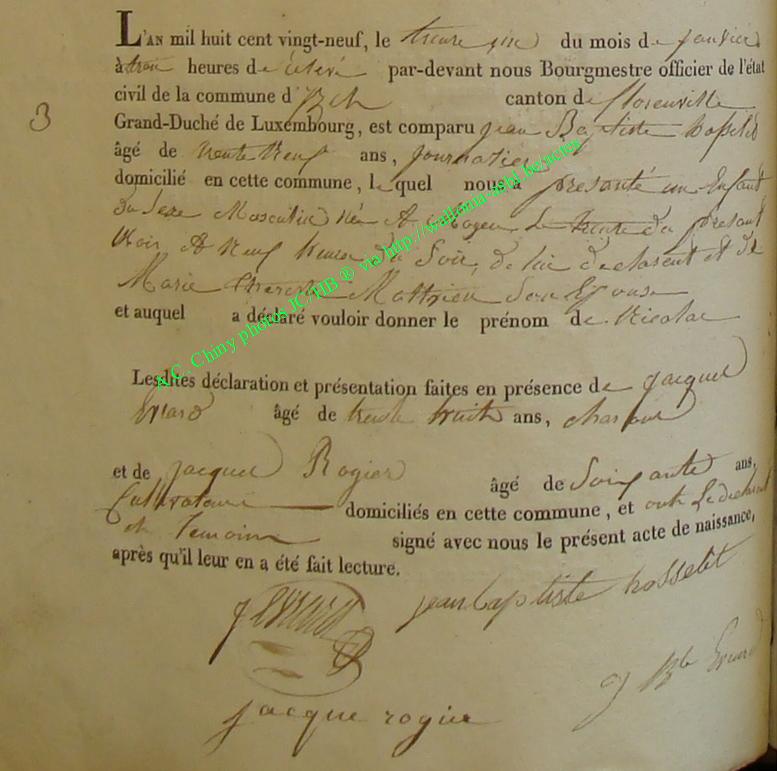 L'AN mil huit cent vingt-neuf, le trente un du mois de janvier
à trois heures de relevé par-devant nous Bourgmestre officier de l'état
civil de la commune d'Izel canton de florenville
3
Grand-Duché de Luxembourg, est comparu jean Baptiste hosselet
âgé de trente neuf ans, journalier
domicilié en cette commune, lequel nous a presanté un Enfant
du Sexe Masculin Née A Moyen Le trente du presant
Mois A neuf heures du Soir, de lui declarent et de
Marie Therese Mathieu Son Epouse
et auquel a déclaré vouloir donner le prénom de Nicolas
Lesdites déclaration et présentation faites en présence de jacques
Evrard âgé de trente huit ans,
et de jacques Rogier âgé de Soixante ans,
Cultivateur domiciliés en cette commune, et ont Le declarent
et Temoins signé avec nous le présent acte de naissance,
après qu'il leur en a été fait lecture.
jean baptiste hosselet
j evrard
j Bte Evrard
jacque rogier
A.C. Chiny photos JC/HB ® via http://wallonia-asbl.be/actes